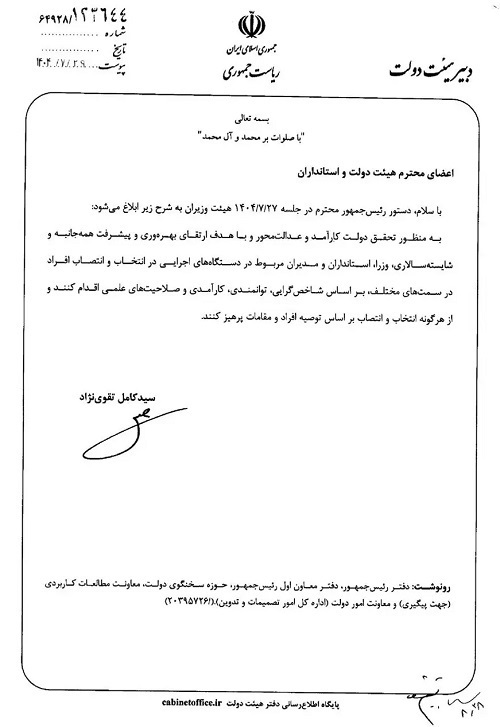 ۶۴۹۲۸/۱۲۳۶۴۴
شماره
تاریخ
پیوست
۱۴۰۴/۷/۲۹
جمهوری اسلامی ایران
ریاست جمهوری
دبیر هیئت دولت
بسمه تعالی
"با صلوات بر محمد و آل محمد"
اعضای محترم هیئت دولت و استانداران
با سلام، دستور رئیس‌جمهور محترم در جلسه ۱۴۰۴/۷/۲۷ هیئت وزیران به شرح زیر ابلاغ می‌شود:
به منظور تحقق دولت کارآمد و عدالت‌محور و با هدف ارتقای بهره‌وری و پیشرفت همه‌جانبه و
شایسته‌سالاری، وزرا، استانداران و مدیران مربوط در دستگاه‌های اجرایی در انتخاب و انتصاب افراد
در سمت‌های مختلف، بر اساس شاخص‌گرایی، توانمندی، کارآمدی و صلاحیت‌های علمی اقدام کنند و
از هرگونه انتخاب و انتصاب بر اساس توصیه افراد و مقامات پرهیز کنند.
سیدکامل تقوی‌نژاد
رونوشت: دفتر رئیس‌جمهور، دفتر معاون اول رئیس‌جمهور، حوزه سخنگوی دولت، معاونت مطالعات کاربردی
(جهت پیگیری) و معاونت امور دولت (اداره کل امور تصمیمات و تدوین).(/۲۰۳۹۵۷۲۶)
پایگاه اطلاع‌رسانی دفتر هیئت دولت cabinetoffice.ir